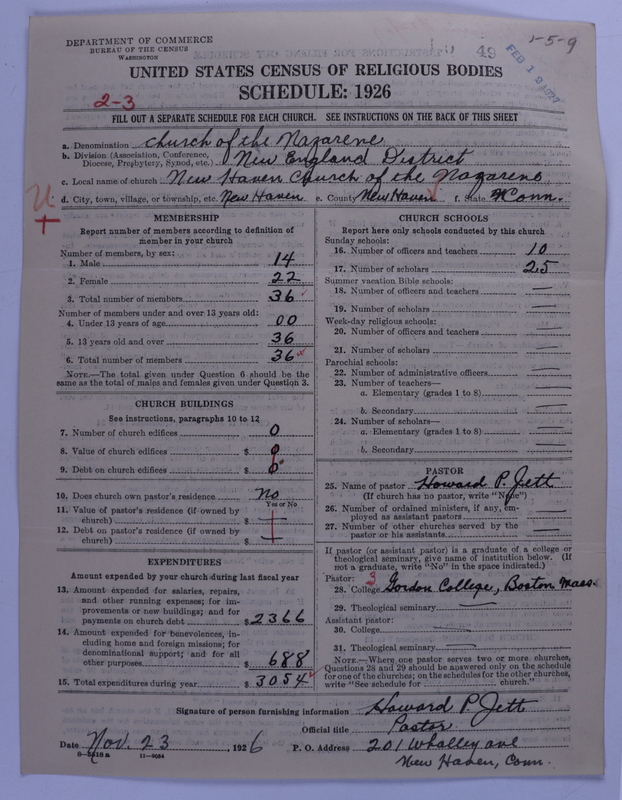 1-5-9
DEPARTMENT OF COMMERCE
BUREAU OF THE CENSUS
WASHINGTON
49
FEB 12 1927
UNITED STATES CENSUS OF RELIGIOUS BODIES
SCHEDULE: 1926
2-3
FILL OUT A SEPARATE SCHEDULE FOR EACH CHURCH. SEE INSTRUCTIONS ON THE BACK OF THIS SHEET
a. Denomination Church of the Nazarene
b. Division (Association, Conference, Diocese, Presbytery, Synod, etc.) New England District
c. Local name of church New Haven Church of the Nazarene
d. City, town, village, or township, etc. New Haven e. County New Haven f. State Conn.
MEMBERSHIP
Report number of members according to definition of
member in your church
Number of members, by sex:
1. Male 14
2. Female 22
3. Total number of members 36
Number of members under and over 13 years old:
4. Under 13 years of age 00
5. 13 years old and over 36
6. Total number of members 36
NOTE.—The total given under Question 6 should be the
same as the total of males and females given under Question 3.
CHURCH BUILDINGS
See instructions, paragraphs 10 to 12
7. Number of church edifices 0
8. Value of church edifices $ 0
9. Debt on church edifices $ 0
10. Does church own pastor's residence No
Yes or No
11. Value of pastor's residence (if owned by
church) $ —
12. Debt on pastor's residence (if owned by
church) $ —
EXPENDITURES
Amount expended by your church during last fiscal year
13. Amount expended for salaries, repairs,
and other running expenses; for im-
provements or new buildings; and for
payments on church debt $2366
14. Amount expended for benevolences, in-
cluding home and foreign missions; for
denominational support; and for all
other purposes $ 688
15. Total expenditures during year $ 3054
CHURCH SCHOOLS
Report here only schools conducted by this church
Sunday schools:
16. Number of officers and teachers 10
17. Number of scholars 25
Summer vacation Bible schools:
18. Number of officers and teachers —
19. Number of scholars —
Week-day religious schools:
20. Number of officers and teachers —
21. Number of scholars —
Parochial schools:
22. Number of administrative officers —
23. Number of teachers—
a. Elementary (grades 1 to 8) —
b. Secondary —
24. Number of scholars—
a. Elementary (grades 1 to 8) —
b. Secondary —
PASTOR
25. Name of pastor Howard P. Jett
(If church has no pastor, write "None")
26. Number of ordained ministers, if any, em-
ployed as assistant pastors —
27. Number of other churches served by the
pastor or his assistants —
If pastor (or assistant pastor) is a graduate of a college or
theological seminary, give name of institution below. (If
not a graduate, write "No" in the space indicated.)
Pastor: 3
28. College Gordon College, Boston Mass.
29. Theological seminary —
Assistant pastor:
30. College —
31. Theological seminary —
NOTE.—Where one pastor serves two or more churches,
Questions 28 and 29 should be answered only on the schedule
for one of the churches; on the schedules for the other churches,
write "See schedule for church."
Signature of person furnishing information Howard P. Jett
Official title Pastor
Date Nov. 23, 1926 P. O. Address 201 Whalley ave
11—9084
New Haven, Conn.